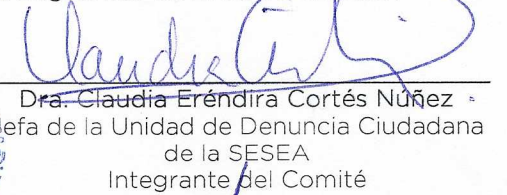 Dra. Claudia Eréndira Cortés Núñez
efa de la Unidad de Denuncia Ciudadana
de la SESEA
Integrante del Comité